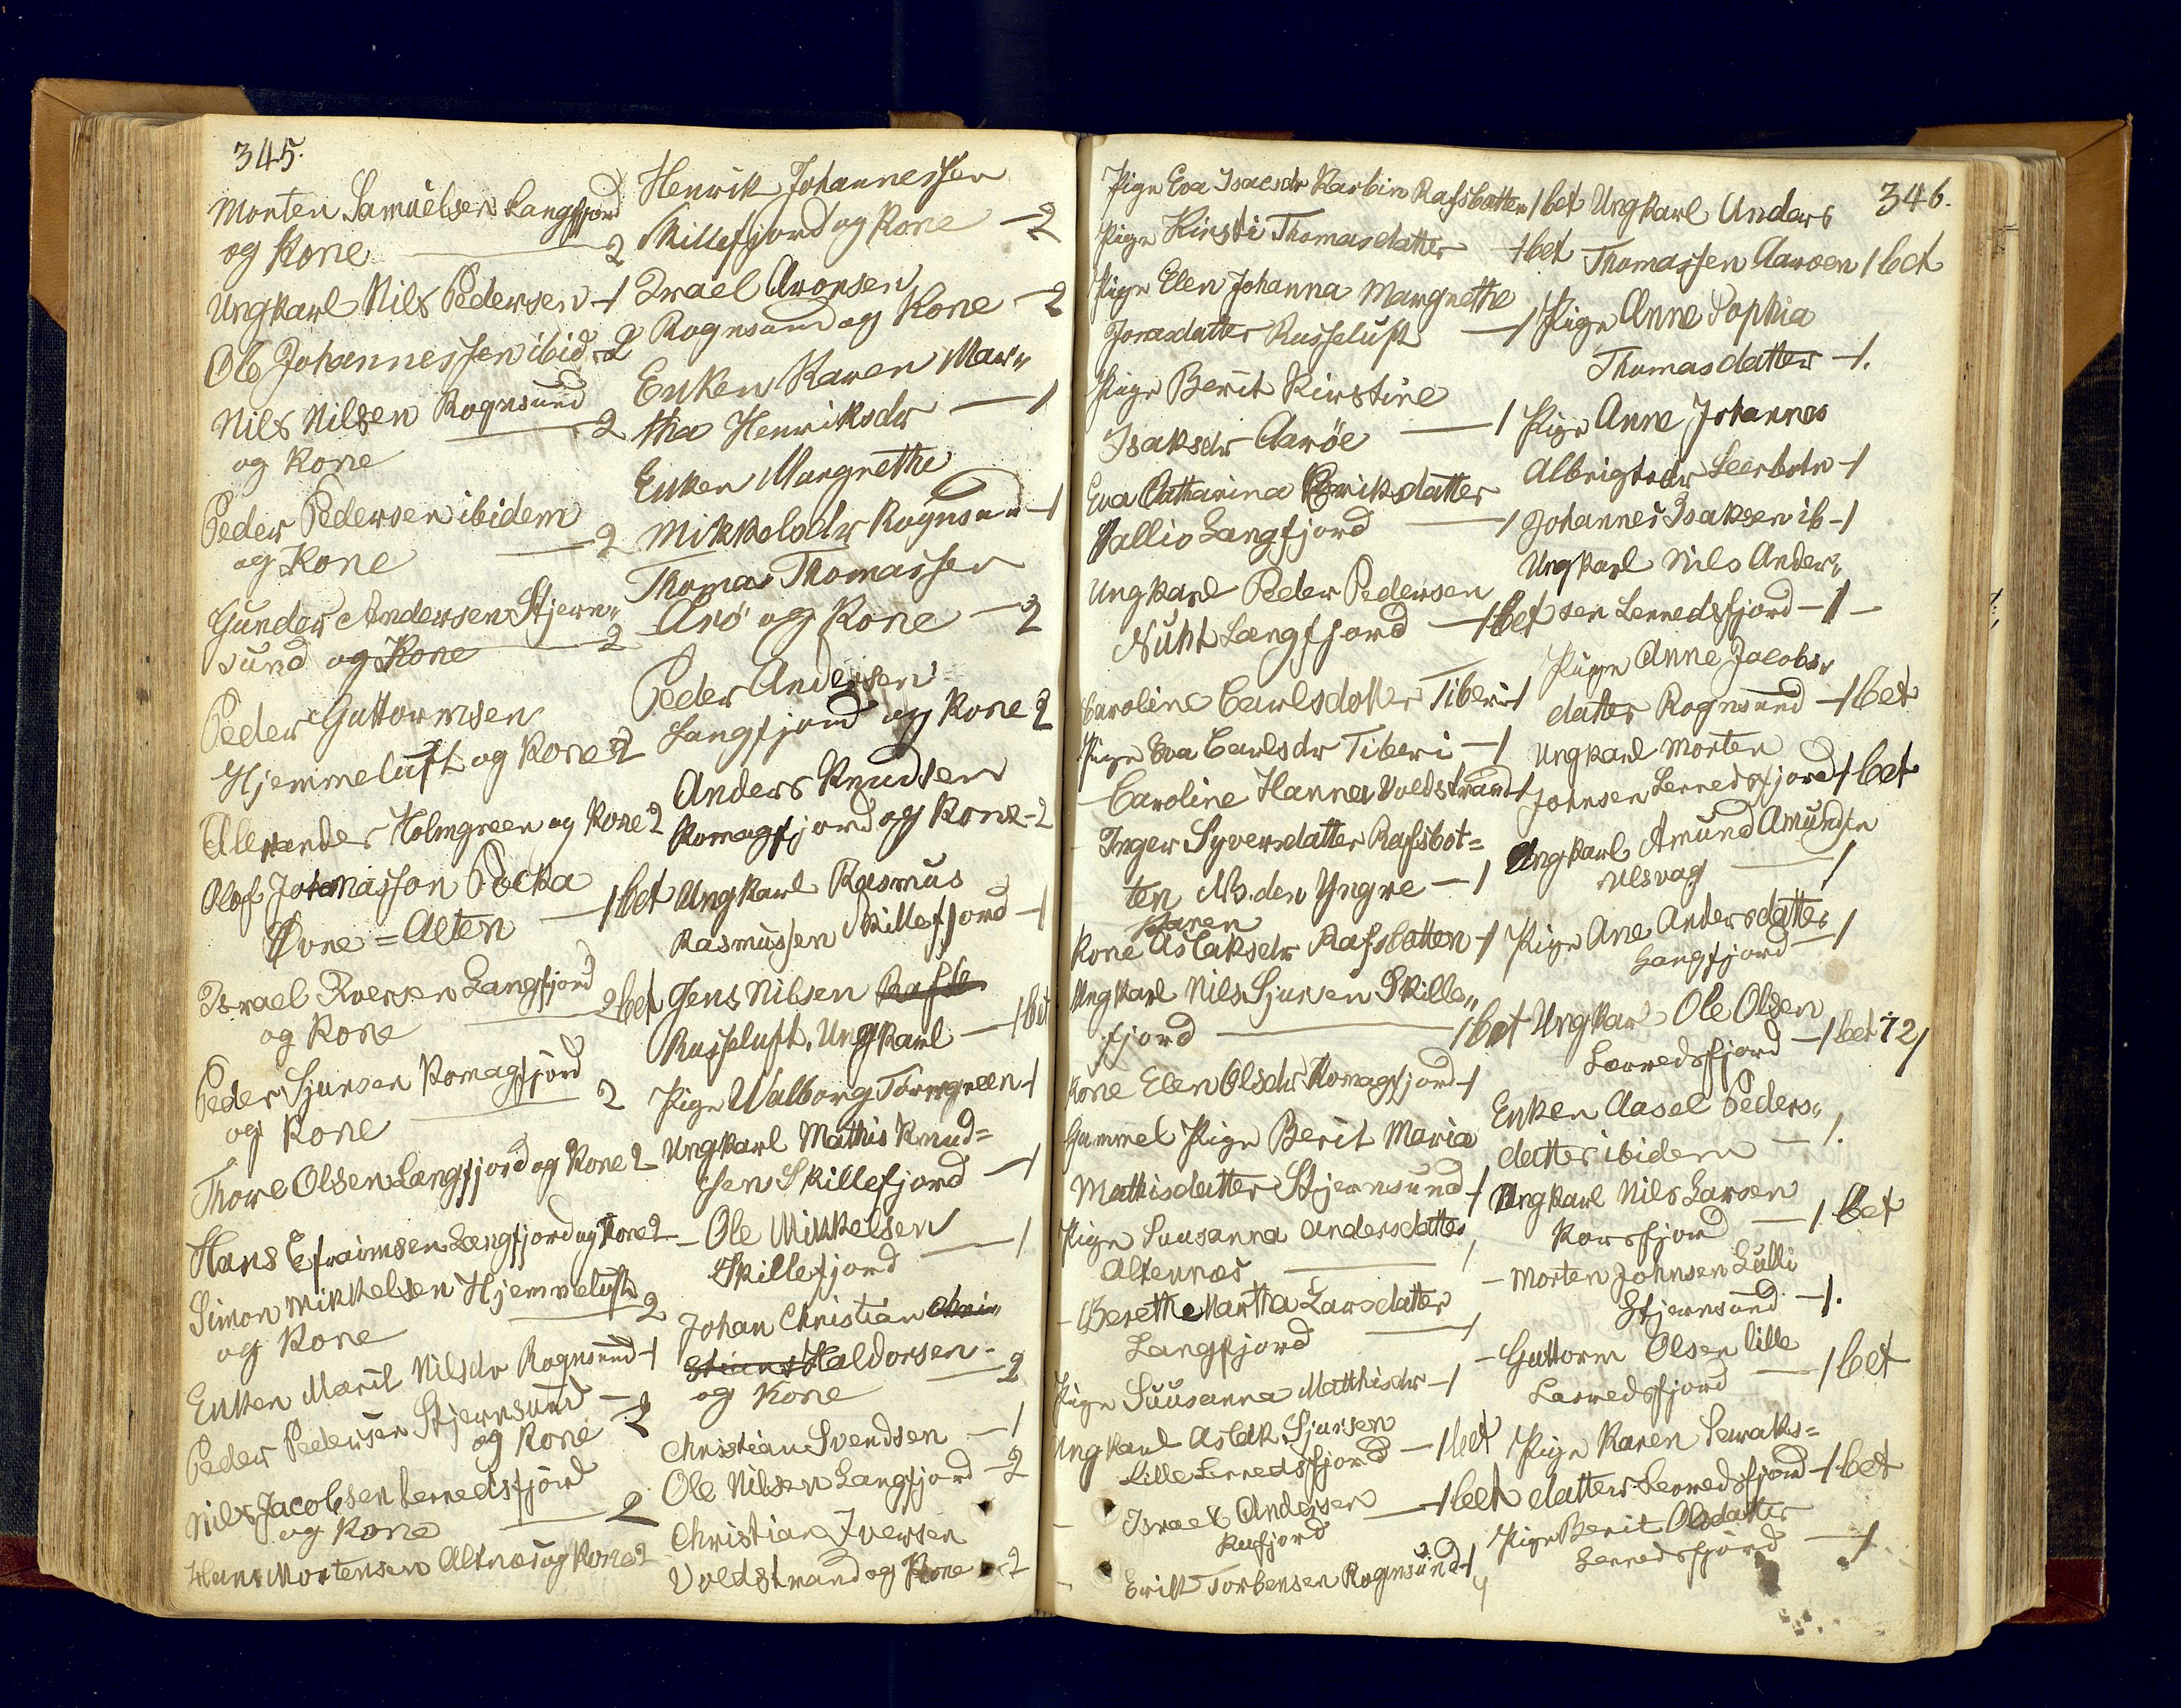 345.
Morten Samuelsen Langfjord
og Kone — 2
Ungkarl Nils Pedersen -1
Ole Johannessen ibid -2
Nils Nilsen Rognsund
og Kone — 2
Peder Pedersen ibidem
og Kone — 2
Gunder Andersen Stjern„
sund og Kone — 2
Peder Guttormsen
Hjemmeluft og Kone 2
Alexander Holmgreen og Kone 2
Olof Johannasson Pocka
Øvre = Alten — 1 bet
Israel Iversen Langfjord
og Kone — 2 bet
Peder Sjursen Komagfjord
og Kone — 2
Thore Olsen Langfjord og Kone 2
Hans Efraimsen Langfjord og Kone 2
Simon Mikkelsen Hjemmeluft
og Kone — 2
Enken Marit Nilsdr Rognsund -1
Peder Pedersen Stjernsund —
og Kone 2
Nils Jacobsen Lerredsfjord
og Kone — 2
Hans Mortensen Altnæs og Kone 2
Henrik Johannessen
Skillefjord og Kone — 2
Israel Aronsen
Rognsund og Kone — 2
Enken Karen Mar„
tha Henriksdr — 1
Enken Margrethe
Mikkelsdr Rognsund -1
Thomas Thomassen
Arø og Kone — 2
Peder Andersen
Langfjord og Kone 2
Anders Knudsen
Komagfjord og Kone -2
Ungkarl Rasmus
Rasmussen Skillefjord -1
Jens Nilsen Rafsb
Russeluft, Ungkarl — 1 bet
Pige Walborg Torngreen -1
Ungkarl Mathis Knud=
sen Skillefjord — 1
- Ole Mikkelsen
Skillefjord — 1
Johan Christian Chri„
stians Haldorsen -
og Kone — 2
Christian Svendsen — 1
Ole Nilsen Langfjord -2
Christian Iversen
Voldstrand og Kone - 2
346.
Pige Eva Isacsdr Karbin Rafsbotten 1 bet
Pige Kirsti Thomasdatter -1 bet
Pige Elen Johanna Margrethe
Jonasdatter Russeluft — 1
Pige Berit Kirstine
Isaksdr Aarøe — 1
Eva Catharina Eriksdatter
Pallio Langfjord — 1
Ungkarl Peder Pedersen
Nuht Langfjord — 1 bet
Caroline Carlsdatter Tiberi -1
Pige Eva Carlsdr Tiberi — 1
- Caroline Hanna Voldstrand -1
Inger Syversdatter Rafsbot=
ten Nb. den Yngre — 1
Karen
Kone Aslaksdr Rafsbotten -1
Ungkarl Nils Sjursen Skille„
fjord — 1 bet
Kone Elen Olsdr Komagfjord -1
Gammel Pige Berit Maria
Mathisdatter Stjernsund -1
Pige Suusanna Andersdatter
Altennæs — 1
- Berethe Martha Larsdatter
Langfjord — 1
Pige Suusanna Matthisdr -1
Ungkarl Aslak Sjursen
Lille Lerredsfjord — 1 bet
Israel Andersen — 1 bet
Kufjord
Erik Torbensen Rognsund -1
Ungkarl Anders
Thomassen Aarøen 1 bet
Pige Anne Sophia
Thomasdatter -1.
Pige Anne Johannes
Albrigtsdr Leerbotn -1
Johannes Isaksen ib -1
Ungkarl Nils Ander„
sen Lerredsfjord -1 -
Pige Anne Jacobs„
datter Rognsund -1 bet
Ungkarl Morten
Johnsen Lerredsfjord 1 bet
Ungkarl Amund Amundsen
Ulsvag — 1
Pige Ane Andersdatter
Langfjord — 1
Ungkarl Ole Olsen
Lerredsfjord -1 bet 72/
Enken Aasel Peders„
datter ibidem — 1.
Ungkarl Nils Larsen
Korsfjord — 1 bet
- Morten Johnsen Lulli
Stjernsund -1.
- Guttorm Olsen lille
Lerredsfjord — 1 bet
Pige Karen
datter Lerredsfjord -1 bet
Pige Berit Olsdatter
Lerredsfjord — 1